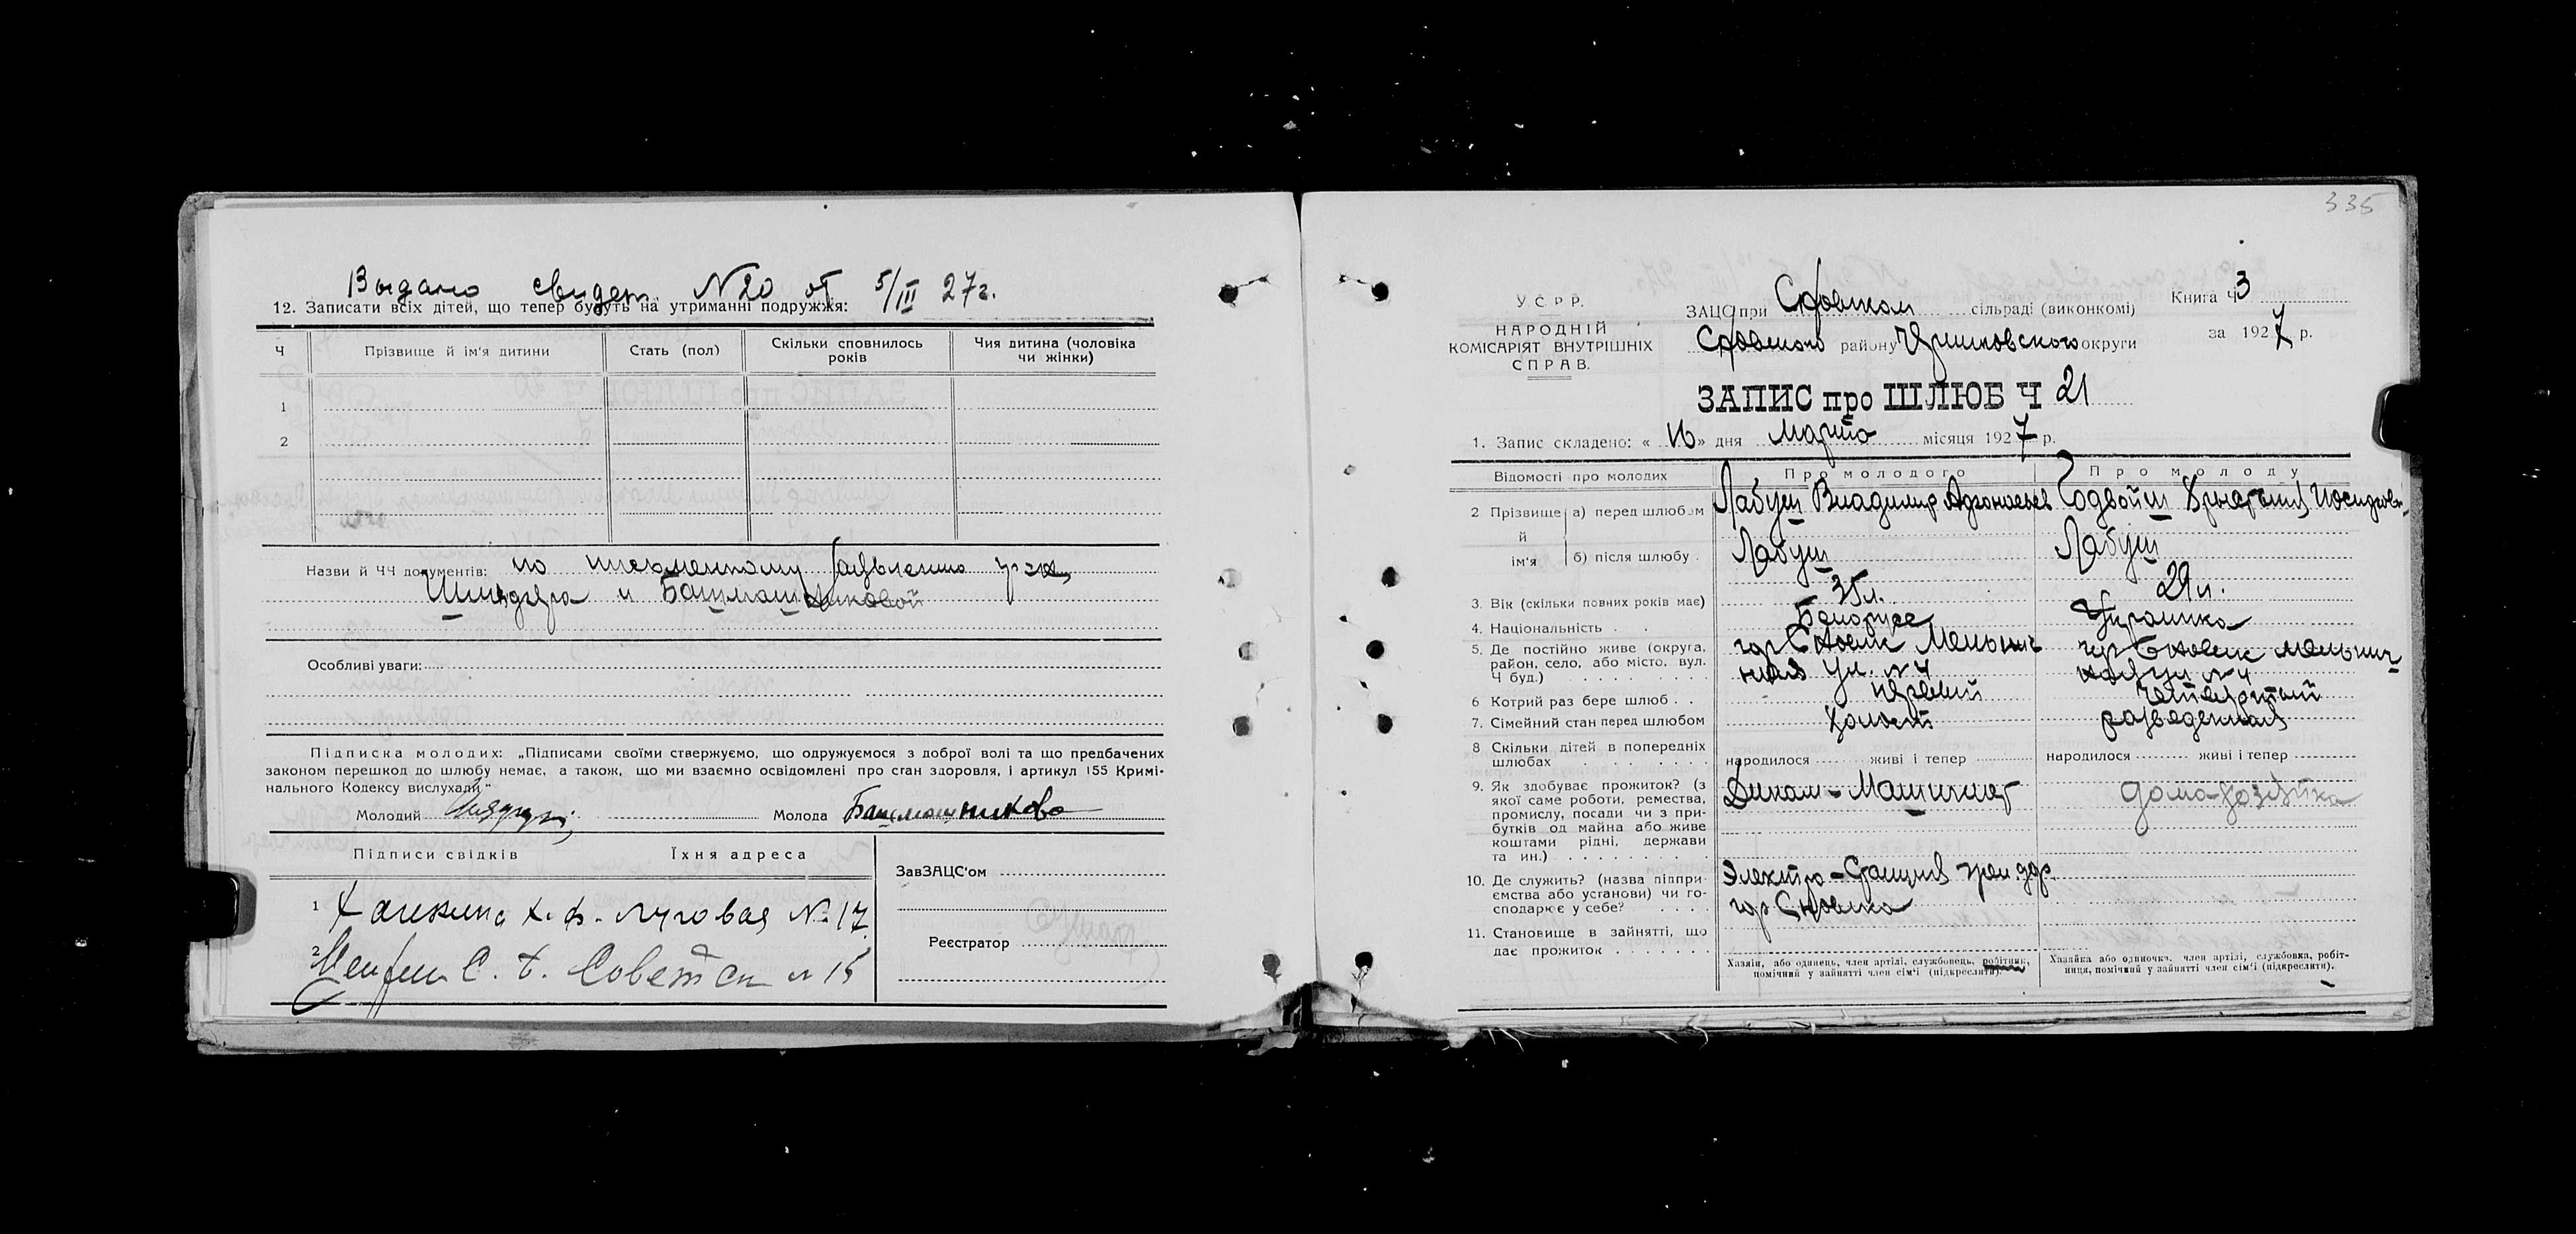 Выдано свидет. N 20 от 5/III 27г.
12. Записати всіх дітей, що тепер будуть на утриманні подружжя:
Ч Прізвище й ім'я дитини Стать (пол) Скільки сповнилось років Чия дитина (чоловіка чи жінки)
1
2
Назви й ЧЧ документів: по письменному заявлению граж
и Башмашниковой
Особливі уваги:
Підписка молодих: „Підписами своїми ствержуємо, що одружуємося з доброї волі та що предбачених
законом перешкод до шлюбу немає, а також, що ми взаємно освідомлені про стан здоровля, і артикул 155 Кримі-
нального Кодексу вислухали"
Молодий Молода Башмашникова
Підписи свідків Їхня адреса
ЗавЗАЦС'ом
1 Луговая № 17
Реєстратор
2 С. Советск N 15
335
УСРР.
НАРОДНІЙ
КОМІСАРІЯТ ВНУТРІШНІХ
СПРАВ.
ЗАЦС при Сновском сільраді (виконкомі)
Книга Ч 3
Сновского району округи
за 1927 р.
ЗАПИС про ШЛЮБ Ч 21
1. Запис складено: « 16 » дня Марта місяця 1927 р.
Відомості про молодих Про молодого Про молоду
2 Прізвище й ім'я а) перед шлюбом Лабуш Владимир
б) після шлюбу Лабуш Лабуш
3. Вік (скільки повних років має) 35 л. 29 л.
4. Національність Белорусс Украинка
5. Де постійно живе (округа, гор Сновск Мельнич гор Сновск мельнич
район, село, або місто, вул.
Ч буд.) ная ул. N 4 ная ул N 4
6 Котрий раз бере шлюб первый четвертый
7. Сімейний стан перед шлюбом холост разведенная
8 Скільки дітей в попередніх
шлюбах народилося живі і тепер народилося живі і тепер
9. Як здобуває прожиток? (з Машинист домо-хозяйка
якої саме роботи, ремества,
промислу, посади чи з при-
бутків од майна або живе
коштами рідні, держави
та ин.)
10. Де служить? (назва піпри- Электро-Станция
ємства або установи) чи го- гор Сновска
сподарює у себе?
11. Становище в зайнятті, що
дає прожиток
Хазяїн, або одинець, член артілі, службовець, робітник,
помічний у зайнятті член сім'ї (підкреслити).
Хазяйка або одиночка, член артілі, службовка, робіт-
ниця, помічний у зайнятті член сім'ї (підкреслити).